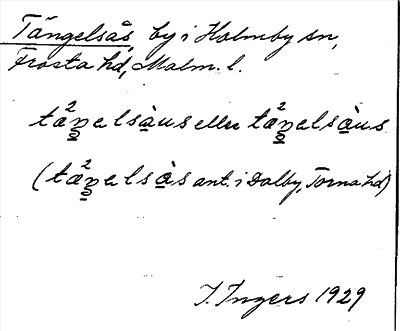 Tängelsås by i Holmby sn,
Frosta hd, Malm. l.
tæ²ŋelsàus eller tæ²ŋelsàus
(tæ²ŋelsàs ant. i Dalby, Torna hd)
I. Ingers 1929